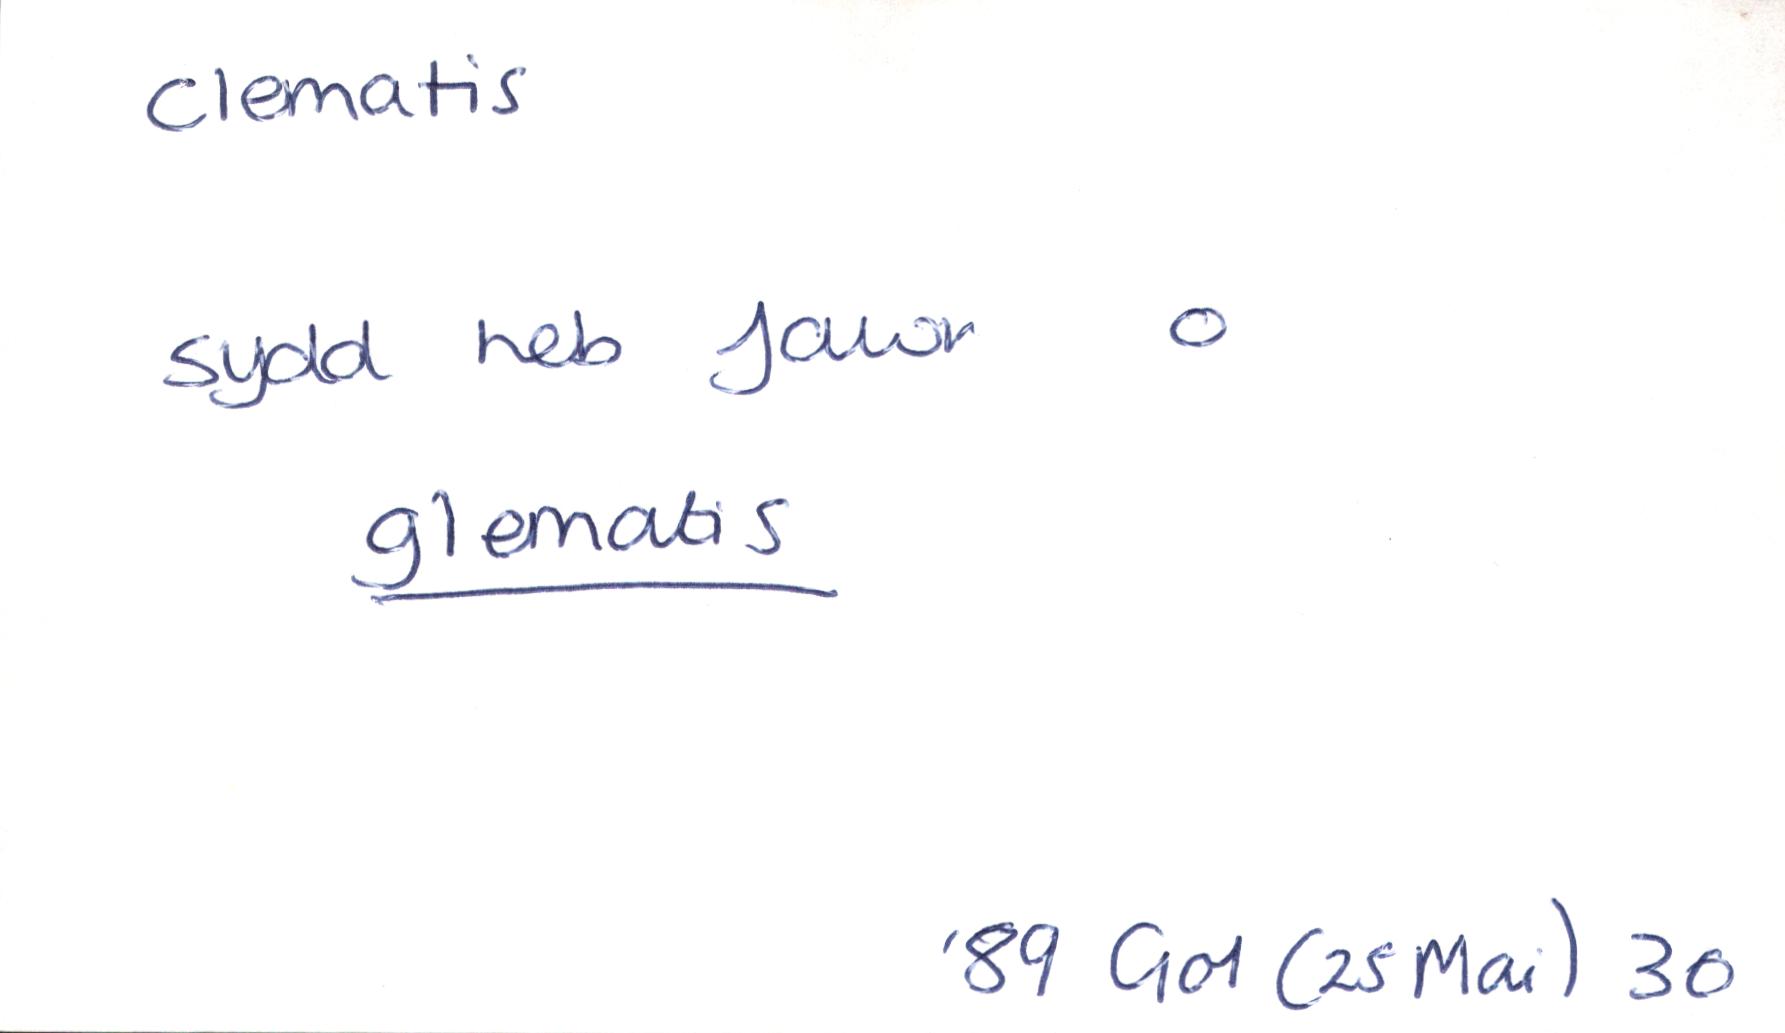 clematis
sydd heb fawr o
glematis
'89 Gol (25 Mai) 30